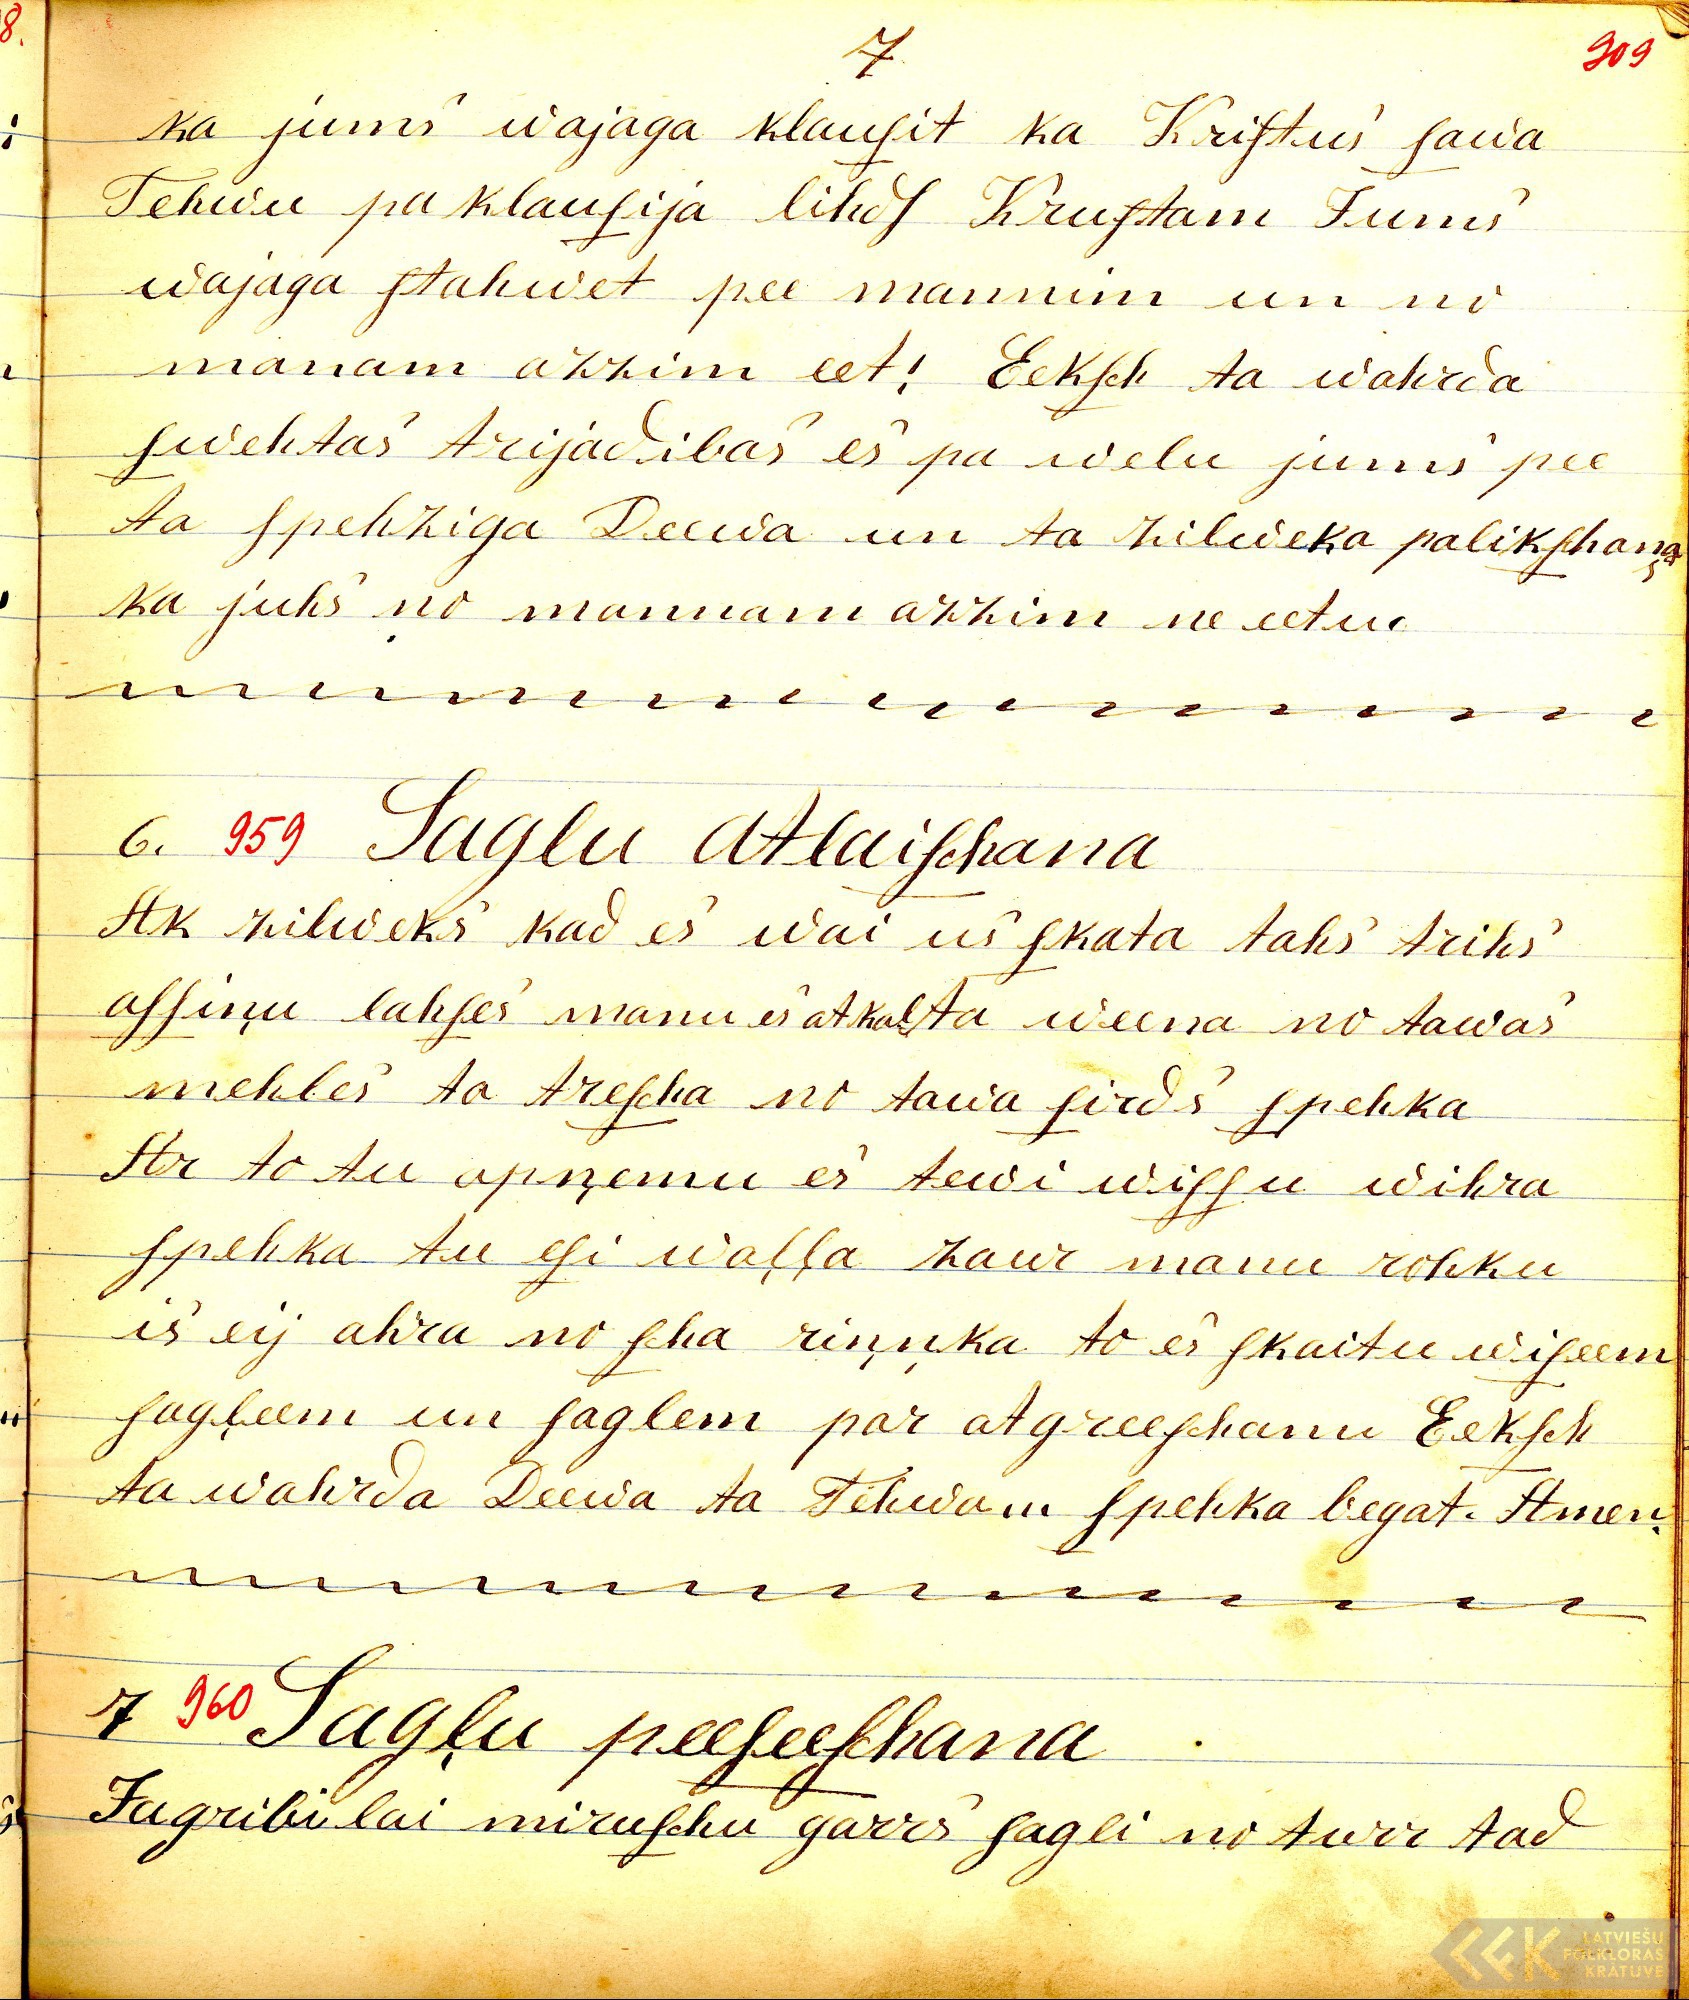 7
909
ka jums wajaga klauſit ka Kriſtus ſawa
Tehwu pa klauſija lihdſ Kruſtam Jums
wajaga ſtahwet pee mannim un no
manam azzim eet! Eekſch ta wahrda
ſwehtas trijadibas es pa welu jums pee
ta ſpehziga Deewa un ta zilweka palikſchanas
ka juhs no mannam azzim ne eetu
6. 959 Saglu Atlaiſchana
Ak zilweks kad es wai us ſkata tahs trihs
aſſiņu lahſes manu es atkal ta weena no tawas
mehles ta treſcha no tawa ſirds ſpehka
Ar to tu apņemu es tewi wiſſu wihra
ſpehka tu eſi waļļa zaur manu rohku
is eij ahra no ſcha riņņka to es ſkaitu wiſeem
ſagļeem un ſaglem par atgreeſchanu Eekſch
ta wahrda Deewa ta Tehwam ſpehka begat. Amen.
7 960 Sagļu peeſeeſchana
Ja gribi lai miruſchu garrs ſagli no turr tad
LATVIEŠU
FOLKLORAS
KRĀTUVE